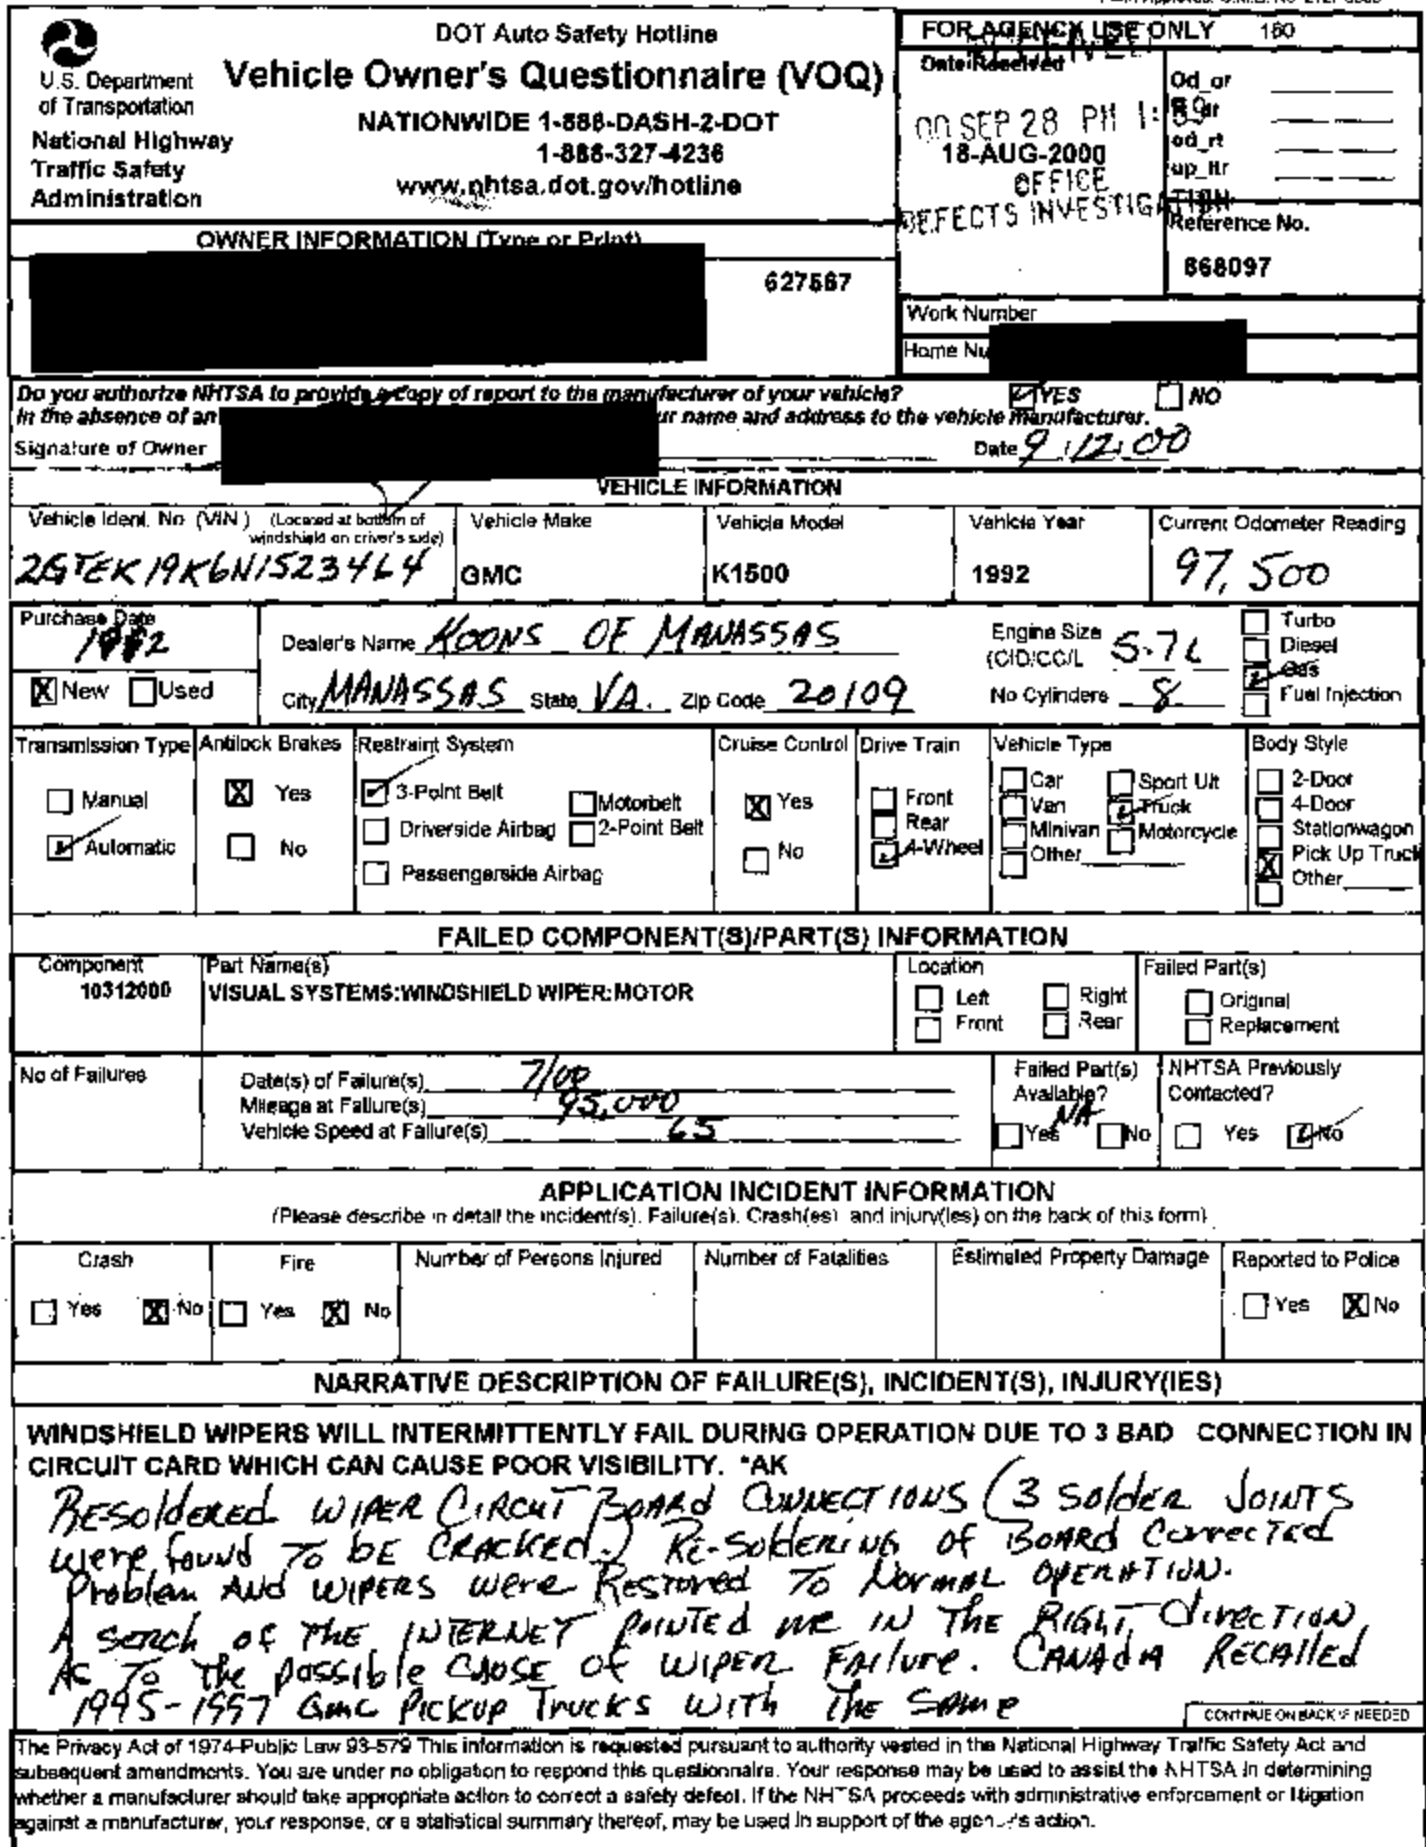 DOT Auto Safety Hotline
Vehicle Owner's Questionnaire (VOQ)
NATIONWIDE 1-888-DASH-2-DOT
1-888-327-4236
www.nhtsa.dot.gov/hotline
U.S. Department
of Transportation
National Highway
Traffic Safety
Administration
FOR AGENCY USE ONLY 160
Date Received
00 SEP 28 PM 1:39
18-AUG-2000
OFFICE
DEFECTS INVESTIGATION
Od_or
od_rt
up_ltr
Reference No.
868097
OWNER INFORMATION (Type or Print)
627567
Work Number
Home Nu
Do you authorize NHTSA to provide a copy of report to the manufacturer of your vehicle? YES NO
In the absence of an ur name and address to the vehicle manufacturer.
Signature of Owner Date 9/12/00
VEHICLE INFORMATION
Vehicle Ident. No (VIN) (Located at bottom of
windshield on driver's side)
2GTEK19K6N1523464
Vehicle Make
GMC
Vehicle Model
K1500
Vehicle Year
1992
Current Odometer Reading
97,500
Purchase Date
1992
New Used
Dealer's Name KOONS OF MANASSAS
City MANASSAS State VA. Zip Code 20109
Engine Size
(CID/CC/L 5.7L
No Cylinders 8
Turbo
Diesel
Gas
Fuel Injection
Transmission Type
Manual
Automatic
Antilock Brakes
Yes
No
Restraint System
3-Point Belt
Driverside Airbag
Passengerside Airbag
Motorbelt
2-Point Belt
Cruise Control
Yes
No
Drive Train
Front
Rear
4-Wheel
Vehicle Type
Car
Van
Minivan
Other
Sport Ult
Truck
Motorcycle
Body Style
2-Door
4-Door
Stationwagon
Pick Up Truck
Other
FAILED COMPONENT(S)/PART(S) INFORMATION
Component
10312000
Part Name(s)
VISUAL SYSTEMS:WINDSHIELD WIPER:MOTOR
Location
Left Right
Front Rear
Failed Part(s)
Original
Replacement
No of Failures
Date(s) of Failure(s) 7/00
Mileage at Failure(s) 95,000
Vehicle Speed at Failure(s) 65
Failed Part(s)
Available?
NA
Yes No
NHTSA Previously
Contacted?
Yes No
APPLICATION INCIDENT INFORMATION
(Please describe in detail the incident(s), Failure(s), Crash(es) and injury(ies) on the back of this form)
Crash
Yes No
Fire
Yes No
Number of Persons Injured
Number of Fatalities
Estimated Property Damage
Reported to Police
Yes No
NARRATIVE DESCRIPTION OF FAILURE(S), INCIDENT(S), INJURY(IES)
WINDSHIELD WIPERS WILL INTERMITTENTLY FAIL DURING OPERATION DUE TO 3 BAD CONNECTION IN
CIRCUIT CARD WHICH CAN CAUSE POOR VISIBILITY. *AK
RESOLDERED WIPER CIRCUT BOARD CONNECTIONS (3 SOLDER JOINTS
were found TO BE CRACKED.) RE-SOLDERING OF BOARD Corrected
Problem And WIPERS were Restored To NORMAL OPERATION.
A serch of THE INTERNET POINTED me IN THE RIGHT direction
As To The possible CAUSE OF WIPER FAIlure. CANAdA RECAlled
1995-1997 GMC PICKUP TRUCKS WITH THE SAME
CONTINUE ON BACK IF NEEDED
The Privacy Act of 1974-Public Law 93-579 This information is requested pursuant to authority vested in the National Highway Traffic Safety Act and
subsequent amendments. You are under no obligation to respond this questionnaire. Your response may be used to assist the NHTSA in determining
whether a manufacturer should take appropriate action to correct a safety defect. If the NHTSA proceeds with administrative enforcement or litigation
against a manufacturer, your response, or a statistical summary thereof, may be used in support of the agency's action.